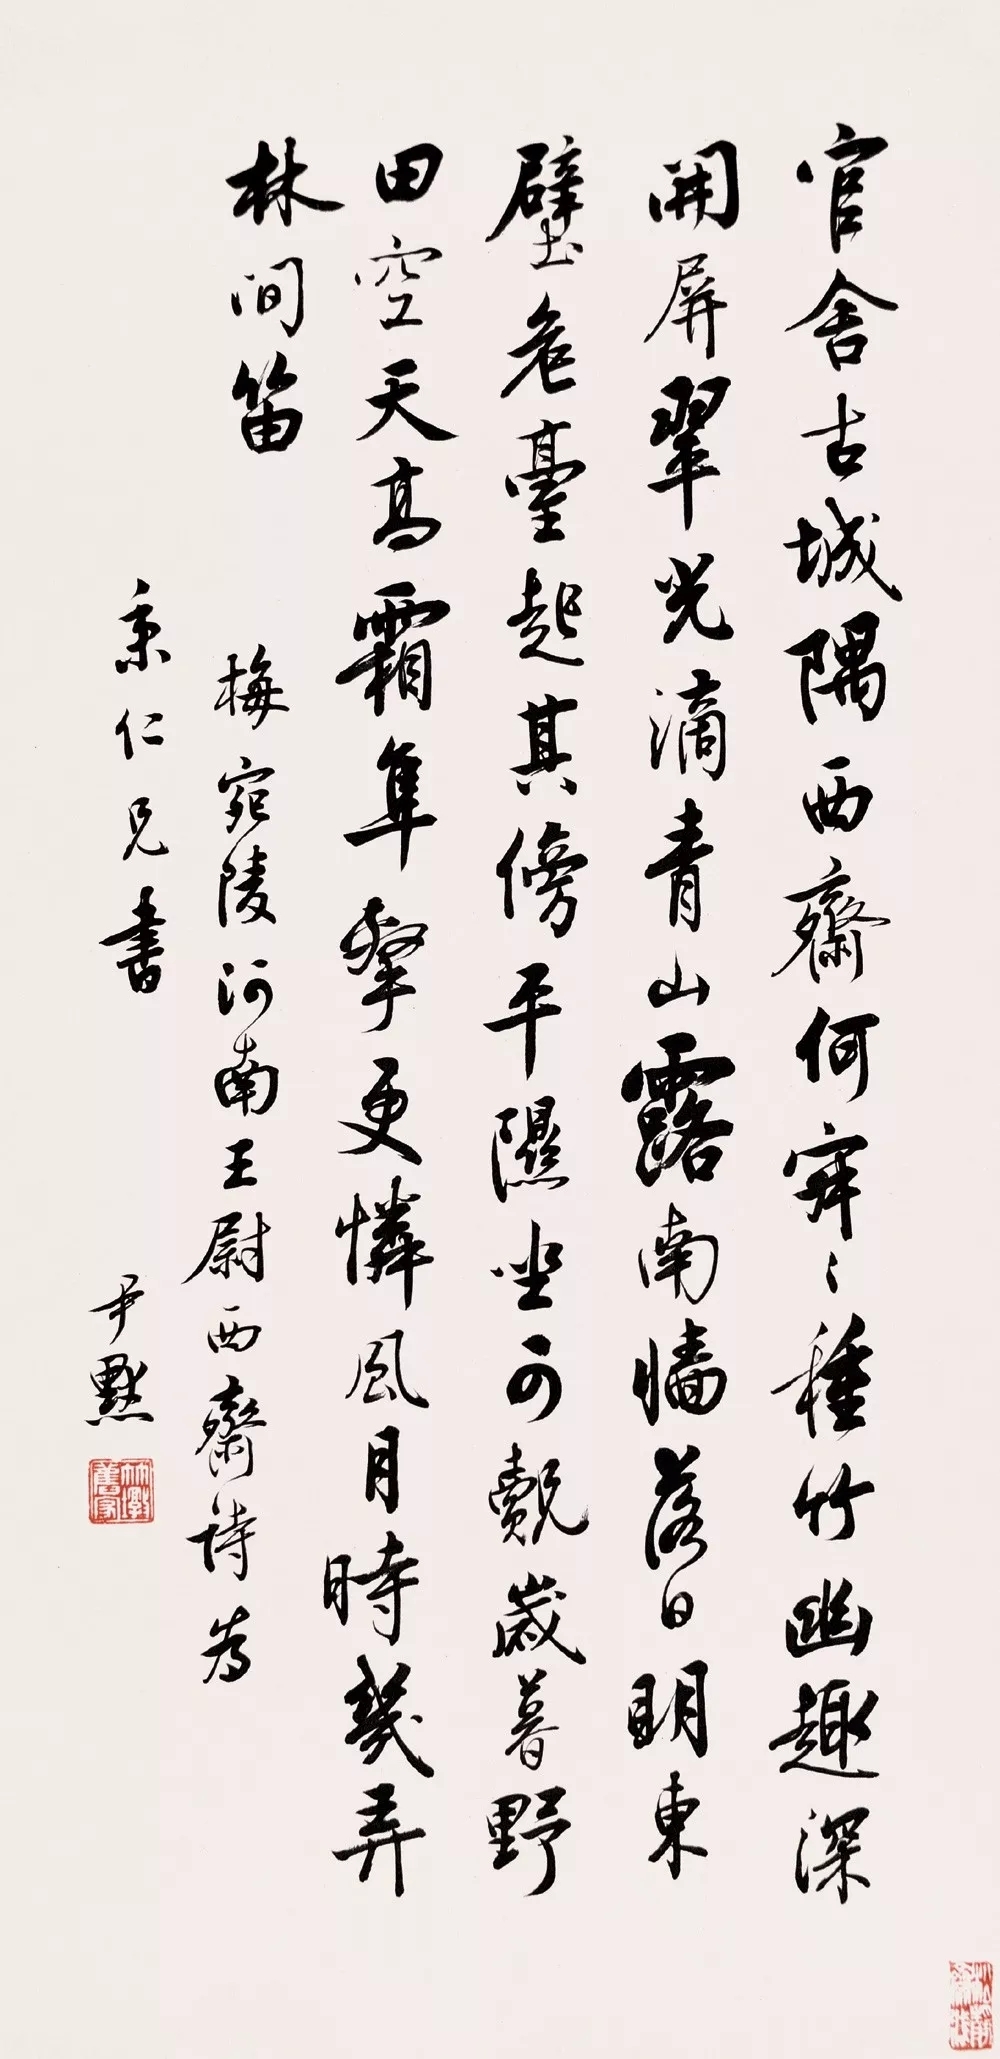 官舍古城隅西齋何寂〻種竹幽趣深
開屏翠光滴青山露南牆落日明東
壁危臺起其傍平隰坐可覿歲暮野
田空天高霜隼擊更憐風月時幾弄
林間笛
梅宛陵河南王尉西齋詩為
秉仁兄書
尹默
竹溪舊家